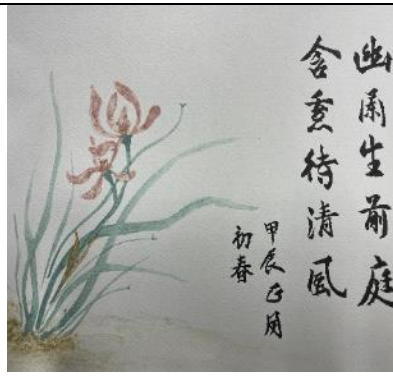 幽蘭生前庭
含熏待清風
甲辰正月
初春